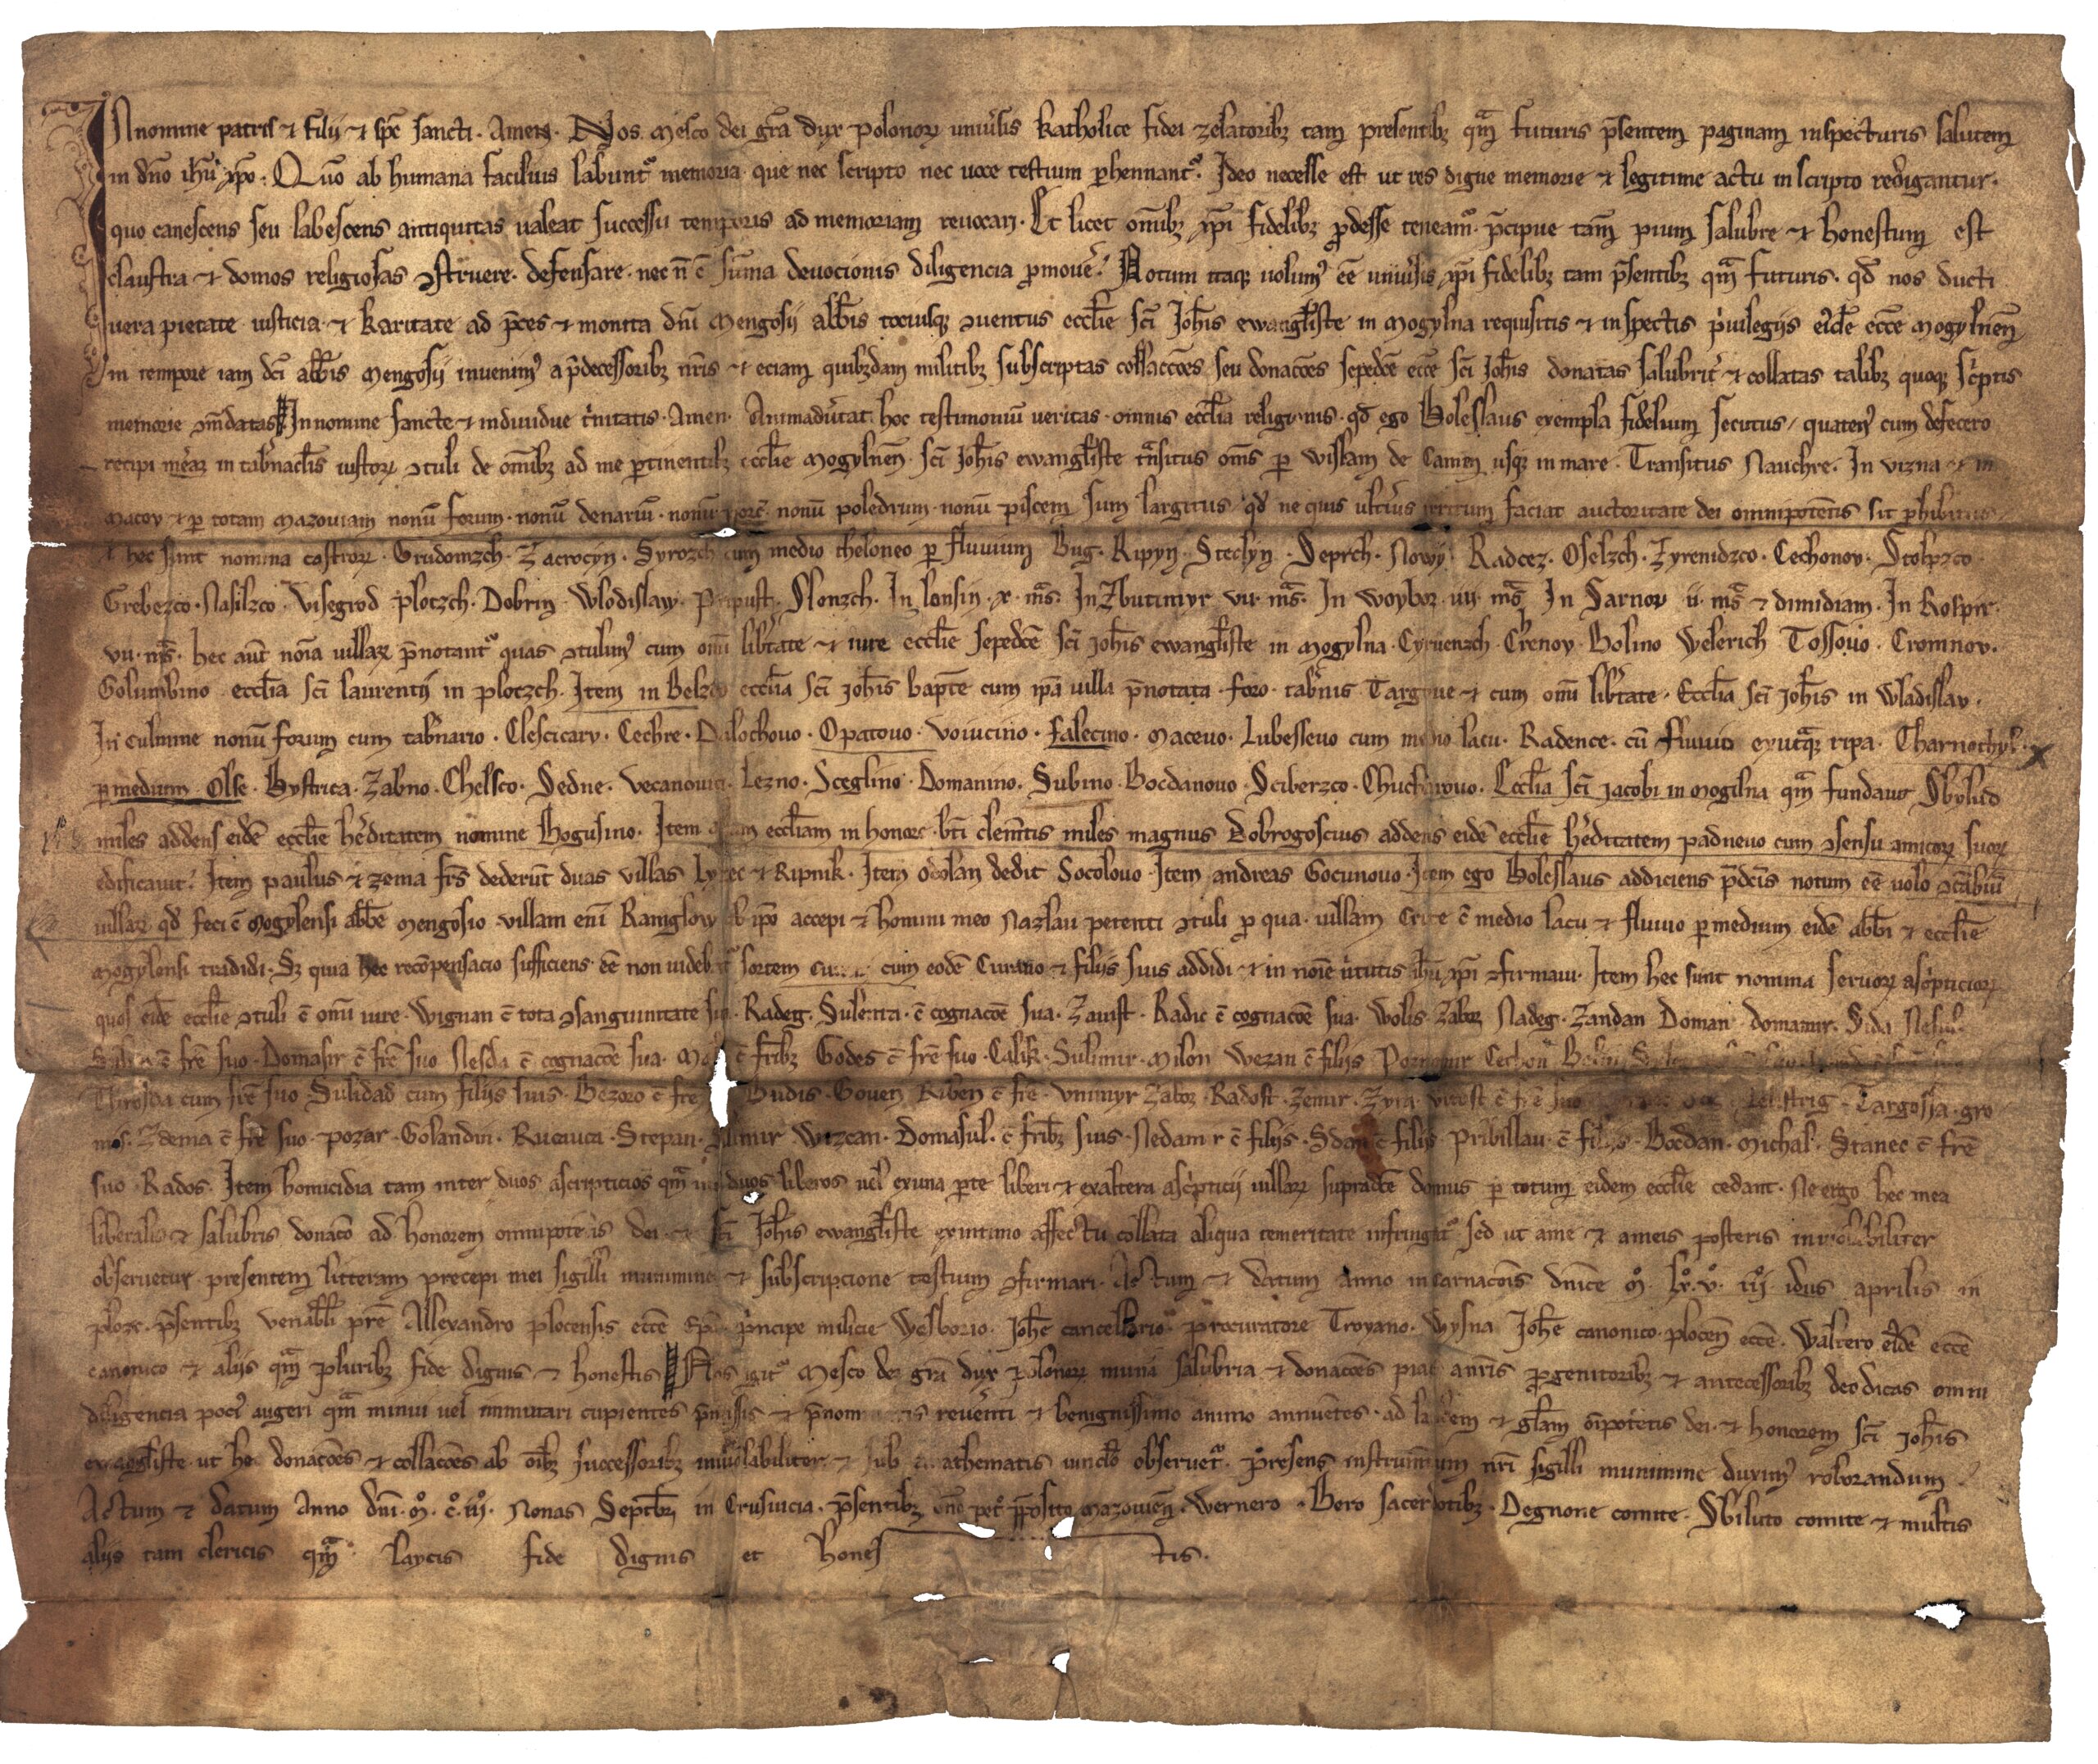 IN nomine patris ⁊ filii ⁊ sp̄c sancti. Amen. Nos. Mesco dei gr̄a dux polonoꝝ uniu̾sis katholice fidei zelatoribꝫ tam presentibꝫ qm̄ futuris p̄sentem paginam inspecturis salutem
in dn̄o ih̄u xp̄o. Qm̄o ab humana facilius labunt᷒ memoria que nec scripto nec uoce testium ꝑhennant᷒. Ideo necesse est ut res digne memorie ⁊ legitime actu in scripto redigantur.
quo canescens seu labescens antiquitas ualeat successu temporis ad memoriam reuocari. Et licet om̄ibꝫ xp̄i fidelibꝫ ꝓdesse teneam᷒. p̄cipue tam̄ pium salubre ⁊ honestum est
claustra ⁊ domos religiosas ɔstruere. defensare. nec n̄ c̄ sum̄a deuocionis diligencia ꝓmoue᷒. Notum itaqꝫ uolum᷒ ee̅ uniu̾sis xp̄i fidelibꝫ tam p̄sentibꝫ qm̄ futuris. qd̄ nos ducti
uera pietate iusticia ⁊ karitate ad p̄ces ⁊ monita dn̄i Mengosii abb̄is tociusqꝫ ɔuentus eccl̄ie sc̄i Joh̄is ewangl̄iste in Mogylna requisitis ⁊ inspectis p̾uilegiis ei̾dē ecc̄e Mogylnen̄
in tempore iam dc̄i abb̄is Mengosii inuenim᷒ a p̄decessoribꝫ nr̄is ⁊ eciam quibꝫdam militibꝫ subscriptas collacc̄oes seu donac̄oes sepedc̄e ecc̄e sc̄i Joh̄is donatas salubrit̾ ⁊ collatas talibꝫ quoqꝫ sc̾ptis
memorie ɔm̄datas In nomine sancte ⁊ indiuidue t̾nitatis. Amen. Animadu̾tat hoc testimoniū ueritas. omnis eccl̄ia religionis. qd̄ ego Boleslaus exempla fidelium secutus / quaten᷒ cum defecero
recipi mer̾ar in tab̾nacl̄is iustoꝝ ɔtuli de om̄ibꝫ ad me ꝑtinentibꝫ eccl̄ie Mogylnen̄. sc̄i Joh̄is ewangl̄iste t̄nsitus om̄s ꝑ wislam de Camen usqꝫ in mare. Transitus Nauchre. In vizna ⁊ in
Macov ⁊ ꝑ totam Mazouiam nonū forum. nonū denariū. nonū porc̄. nonū poledrum. nonū piscem sum largitus qd̄ ne quis ult̾ius irritum faciat auctoritate dei omnipotētis sit ꝓhibitus
⁊ hec sunt nomina castroꝝ. Grudomzch. Zacrocyn. Syrozch cum medio theloneo ꝑ fluuium Bug. Ripyn. Steclyn. Seprch. Nowy. Radcez. Oselzch. Zyrenidzco. Cechonov. Stolpzco.
Grebezco. Nasilzco. Visegrod plotzch. Dobrin. Wlodislaw. Pripust. Slonzch. In lonsin. x. mr̄s. In Zbutimyr vii. mr̄s. In Woyboz. iiii. mr̄s In Sarnov ii. mr̄s ⁊ dimidiam. In Rospir.
vii. mr̄s. hec aūt noīa uillaꝝ p̄notant᷒ quas ɔtulim᷒ cum om̄i lib̾tate ⁊ iure eccl̄ie sepedc̄e sc̄i Joh̄is ewangl̄iste in Mogylna. Cyruenzch. Crenov. Bolino Welerich Tossouo. Cromnov.
Golumbino. eccl̄ia sc̄i laurentii in plotzch. Item in Belzco eccl̄ia sc̄i Joh̄is bapt̄e cum ip̄a uilla p̄notata. foro. tab̾nis Targoue ⁊ cum om̄i lib̾tate. Eccl̄ia sc̄i Joh̄is in Wladislav.
In culmine nonū forum cum tab̾nario. Clescicarv. Cechre. Dalochouo. Opatouo. Voiucino. Falecino. Maceuo. Lubesseuo cum medio lacu. Radence. cū fluuio ex utqꝫ ripa. Charnothyl.
ꝑ medium Olse. Bystrica. Zabno. Chelsco. Sedne. Vecanouici. Lezno. Sceglino. Domanino. Subino. Bocdanouo. Sciberzco. Chuch ouo. Eccl̄ia sc̄i Jacobi in Mogilna qm̄ fundauit Sbylud
miles addens eidē eccl̄ie he̾ditatem nomine Bogusino. Item eccl̄iam in honore. bt̄i clemn̄tis miles magnus Dobrogoscius addens eidē eccl̄ie he̾ditatem padneuo cum ɔsensu amicoꝝ suoꝝ
edificauit. Item paulus ⁊ zema fr̄s dederūt duas villas Ly ec ⁊ Ripnik. Item odolan dedit Socolouo. Item andreas Gocunouo. Item ego Boleslaus addiciens p̄dc̄is notum ee̅ uolo ɔcābiū
uillaꝝ qd̄ feci c̄ Mogylensi abb̄e Mengosio. villam eni̅ Ramglow ab ip̄o accepi ⁊ homini meo Nazlau petenti ɔtuli ꝓ qua. uillam c̄ medio lacu ⁊ fluuio ꝑ medium eidē abb̄i ⁊ eccl̄ie
mogylensi tradidi. Sꝫ quia hec recōpensacio sufficiens ee̅ non uidebat᷒ sortem cum eodē Curauo ⁊ filiis suis addidi ⁊ in noīe u̾tutis ih̄u xp̄i ɔfirmaui. Item hec sunt nomina seruoꝝ asc̾pticioꝝ
quos eidē eccl̄ie ɔtuli c̄ om̄i iure. Wignan c̄ tota ɔsanguinitate sua. Radeg. c̄ cognacōe sua. Zauist. Radic c̄ cognacōe sua. Wolis. Zaboꝝ Nadeg. Zandan Doman. domamir. Sida
c̄ fr̄e suo. Domasir c̄ fr̄e suo Nesda c̄ cognacōe sua. c̄ fr̄ibꝫ Godes c̄ fr̄e suo. Calik. Sulimir. Milon Wezan c̄ filiis
cum fr̄e suo Sulidad cum filiis suis. Bezoro c̄ fr̄e Budis. Gouen Riben c̄ fr̄e. Vnimyr Zaboꝝ. Radost. Zemir. Zyra. c̄ fr̄e suo Targossa. gro
mis. Zdema c̄ fr̄e suo. pozar. Golandin. Rucauca. Stepan. Wezcan. Domasul. c̄ fr̄ibꝫ suis. Nedamir c̄ filiis. c̄ filiis Pribillau. c̄ filiis. Bocdan. Michal. Stanec c̄ fr̄e
suo. Rados. Item homicidia tam inter duos ascripticios qm̄ duos liberos uel ex una ꝑte liberi ⁊ ex altera asc̾pticii uillaꝝ supradc̄e domus ꝑ totum eidem eccl̄ie cedant. Ne ergo hec mea
liberalis ⁊ salubris donac̄o ad honorem omnipotētis dei ⁊ sc̄i Joh̄is ewangl̄iste ex intimo affectu collata aliqua temeritate infringat᷒ sed ut a me ⁊ a meis posteris inuiolabiliter
obseruetur. presentem litteram precepi mei sigilli munimine ⁊ subscripcione testium ɔfirmari. Actum ⁊ datum Anno incarnacōis dn̄ice .mͦ. lxͦ. vͦ. iii. idus aprilis in
plozc. p̄sentibꝫ venab̄li pr̄e Allexandro plocensis ecc̄e ep̄o. p̾ncipe milicie Welborio. Joh̄e cancellario. procuratore Troyano. Wysna Joh̄e canonico. plocen̄ ecc̄e. Waltero ei̾dē ecc̄e
canonico ⁊ aliis qm̄ pluribꝫ fide dignis ⁊ honestis Nos igit᷒ Mesco dei gr̄a dux polonoꝝ salubria ⁊ donac̄oes ꝓgenitoribꝫ ⁊ antecessoribꝫ deo dicas omni
diligencia poci᷒ augeri qm̄ minui uel immutari cupientes p̄missis ⁊ reu̾enti ⁊ benignissimo animo annuētes. ad laudem ⁊ gl̄am oīpotētis dei ⁊ honorem sc̄i Joh̄is
ewangl̄iste. ut he donac̄oes ⁊ collac̄oes ab oībꝫ successoribꝫ inuiolabiliter ⁊ sub anathematis uincl̄o obseruet᷒. presens instrumn̄tum nr̄i sigilli munimine duxim᷒ roborandum.
Actum ⁊ datum Anno dn̄i .mͦ. cͦ. iii. Nonas Septēbꝝ in Crusuicia. p̄sentibꝫ petͦ p̄posito Mazouien̄. Wernero. Bero sacerdotibꝫ. Degnone comite. Sbiluto comite ⁊ multis
aliis tam clericis qm̄ laycis fide dignis et hones tis.